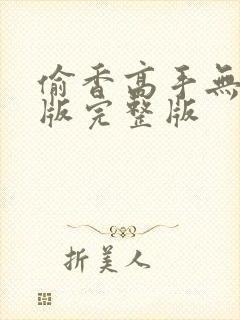 偷香高手無
版完整版
折美人